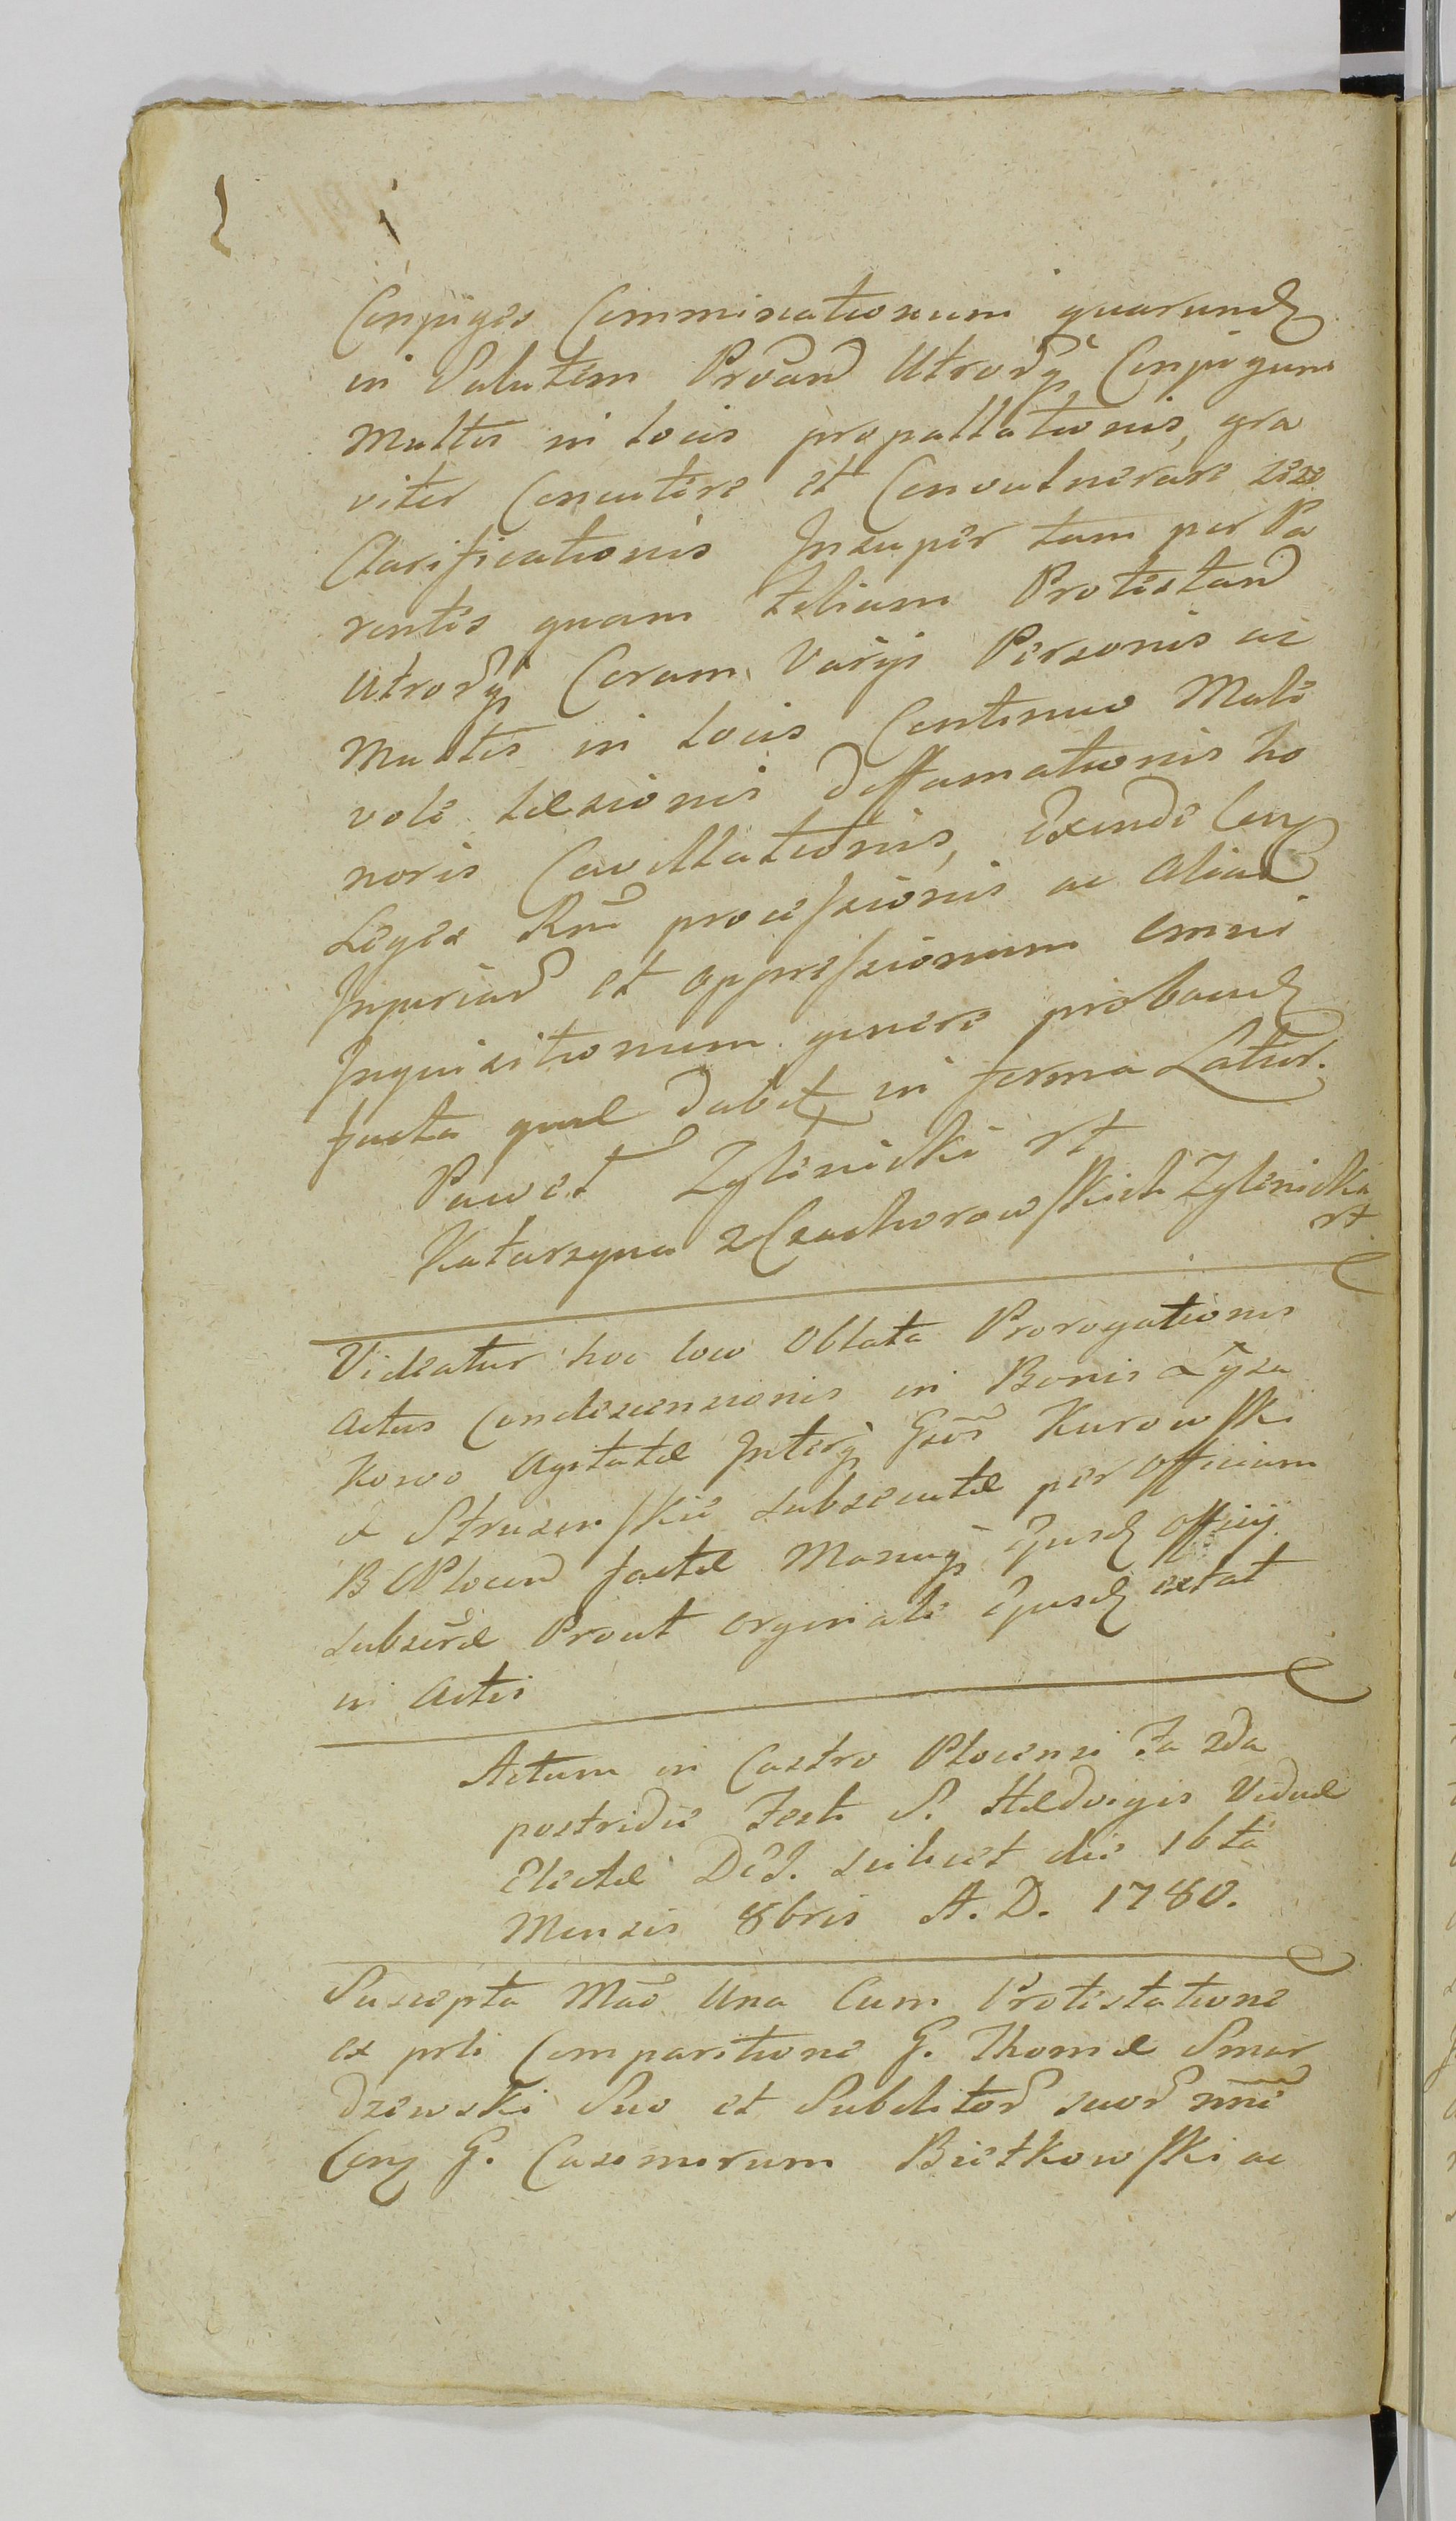 Conjuges Comminationum quarund
in Salutem Protãnd Utrorq Conjugum
Multis in locis propallationis, gra
viter Concutere et Convulnerare sese
Clarificationis Insuper tam per Pa
rentes quam filium Protestand
Utrorq Coram Varijs Personis ac
Multis in locis Continuo Male
vole læsionis diffamationis ho
noris Cavillationis, Exinde Cong
Leges Rni processionis ac aliar
Injuriar et oppressionum omni
Inquisitionum genere proband
facta quæ dabit in forma Latiori.
Paweł Zglinicki rt
Katarzyna z Czachorowskich Zglinicka
rt
Videatur hoc loco Oblata Prorogationis
actus Condescensionis in Bonis Łysa
kowo Agitatæ Interq Gsos Kurowski
& Struzewskie subsecutæ per officium
B C Plocen factæ Manuq Ejusd officij
subscræ Prout orginale Ejusd extat
in Actis
Actum in Castro Plocensi Fa 2da
postridie Festi S. Hædvigis Viduæ
Electæ DES. scilicet die 16ta
Mensis 8bris A. D. 1780.
Suscepta Mão Una Cum Protestatione
ex prti Comparitione G. Thomæ Smar
dzewski Suo et Subditor suor nne
Cong G. Casimirum Bietkowski ac